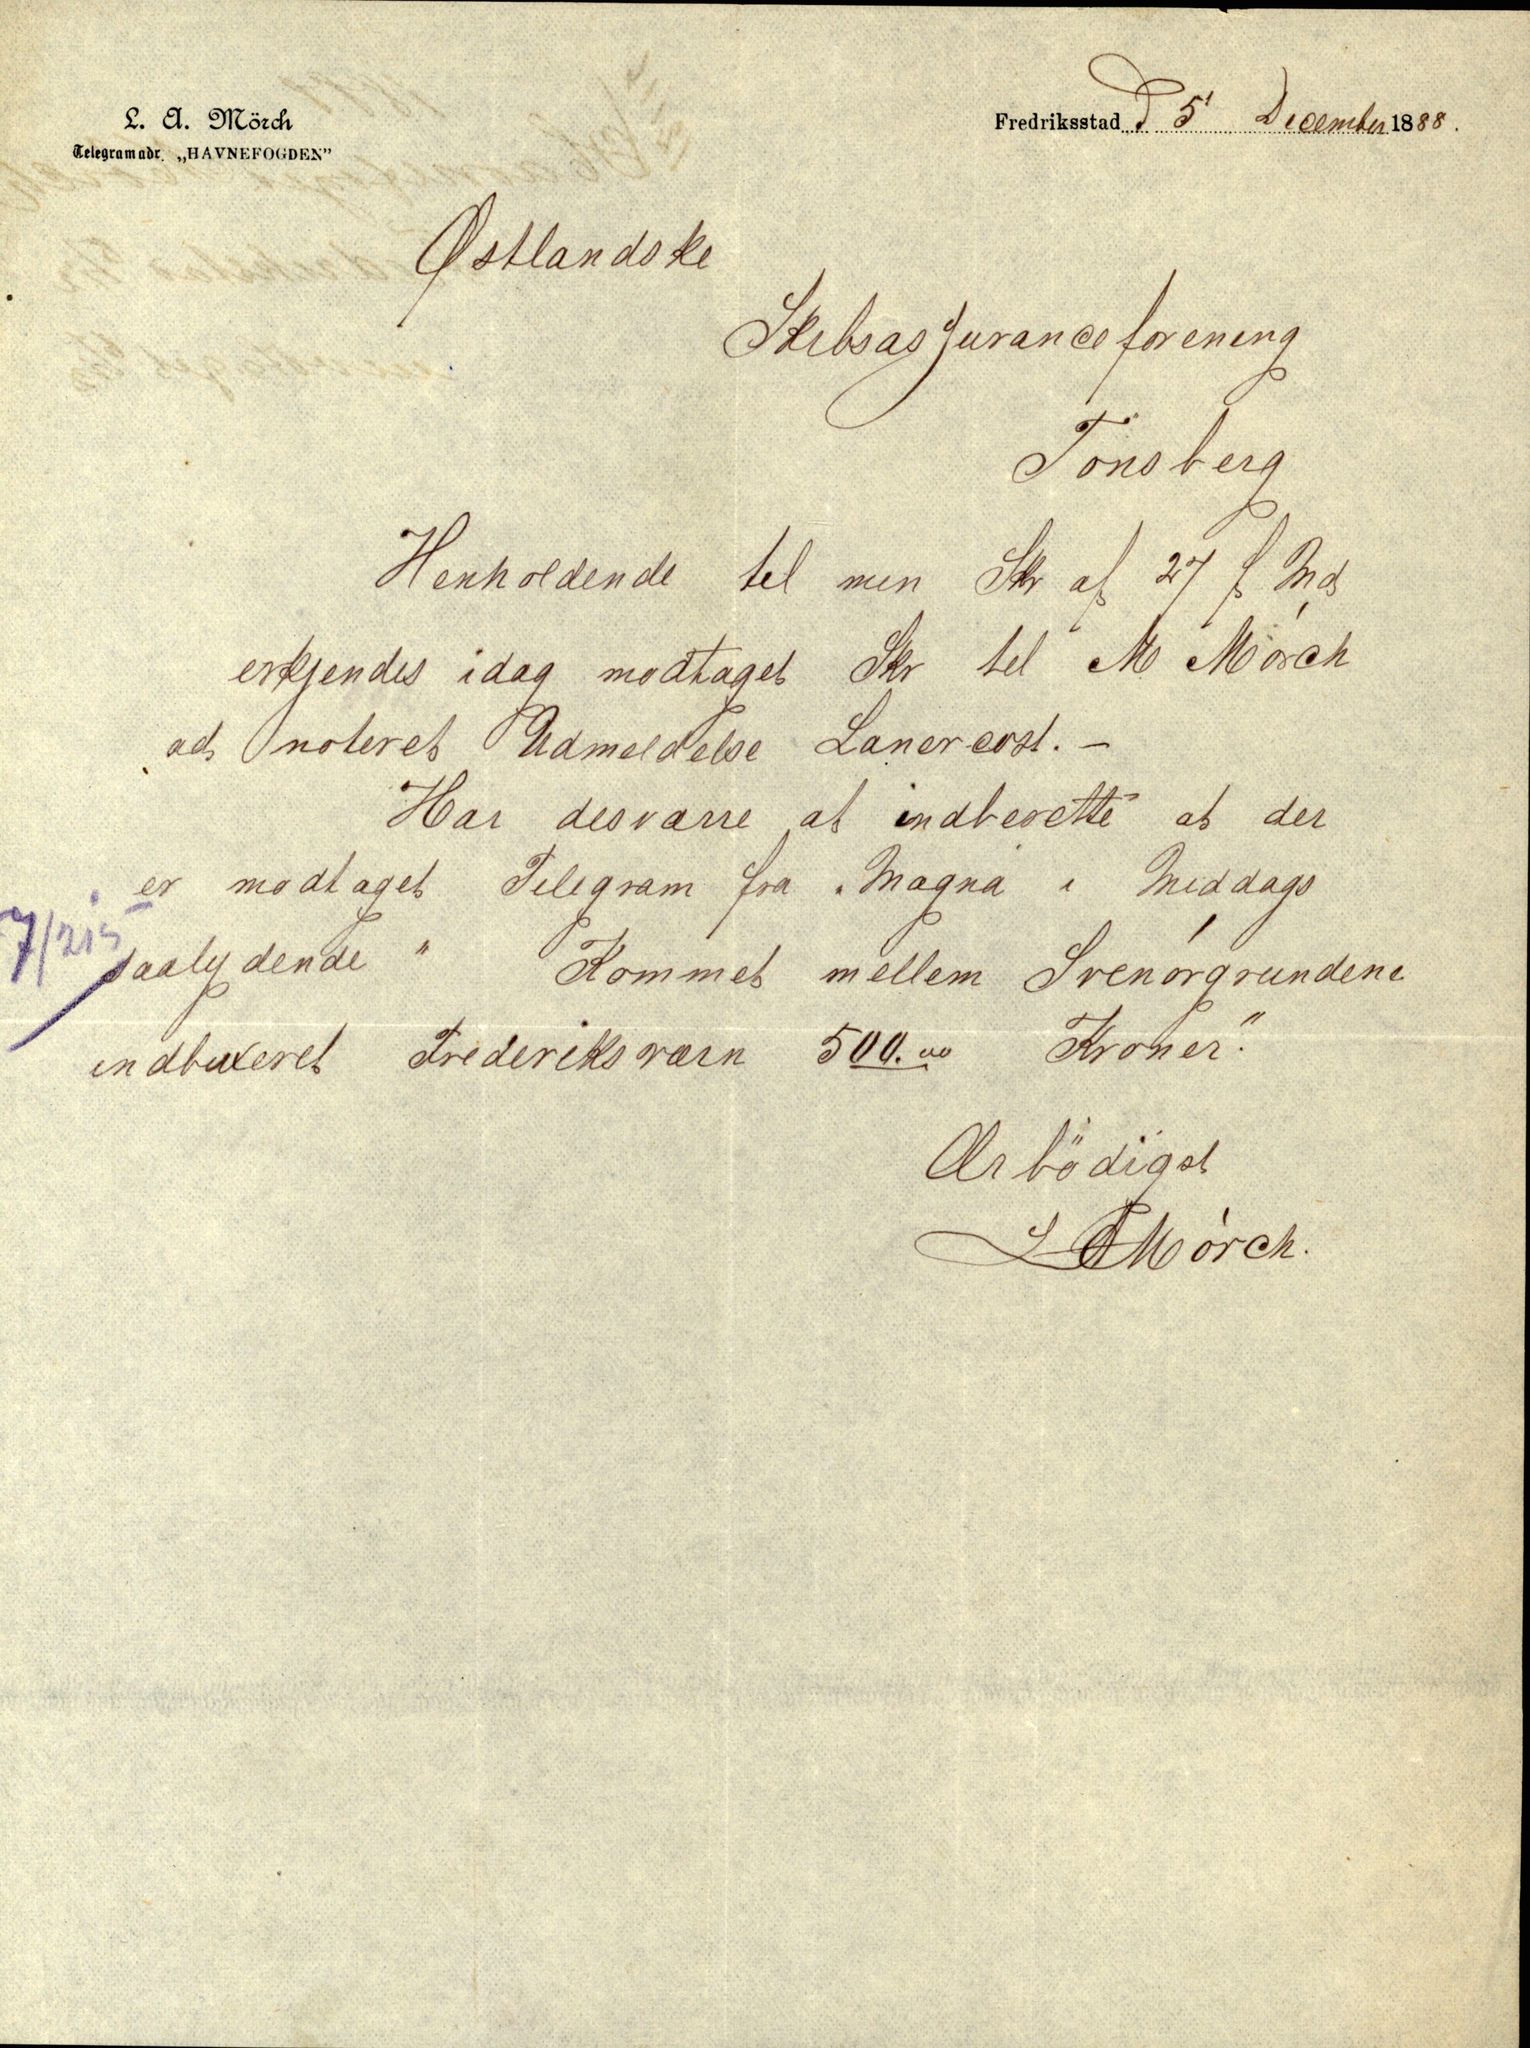 L. A. Mörch
Telegramadr. „HAVNEFOGDEN”
Fredriksstad d 5' December 1888.
Østlandske
Skibsassuranceforening
Tönsberg
Henholdende til min Skr af 27 f Md
erkjendes idag modtaget Skr til M Mörch
ad noteret Udmeldelse Lanercost. –
Har desværre at indberette at der
er modtaget Telegram fra "Magna" i Middags
saalydende " Kommet mellem Svenörgrundene
indbuxeret Frederiksværn 500.00 Kroner."
Ærbödigst
L A Mörch.